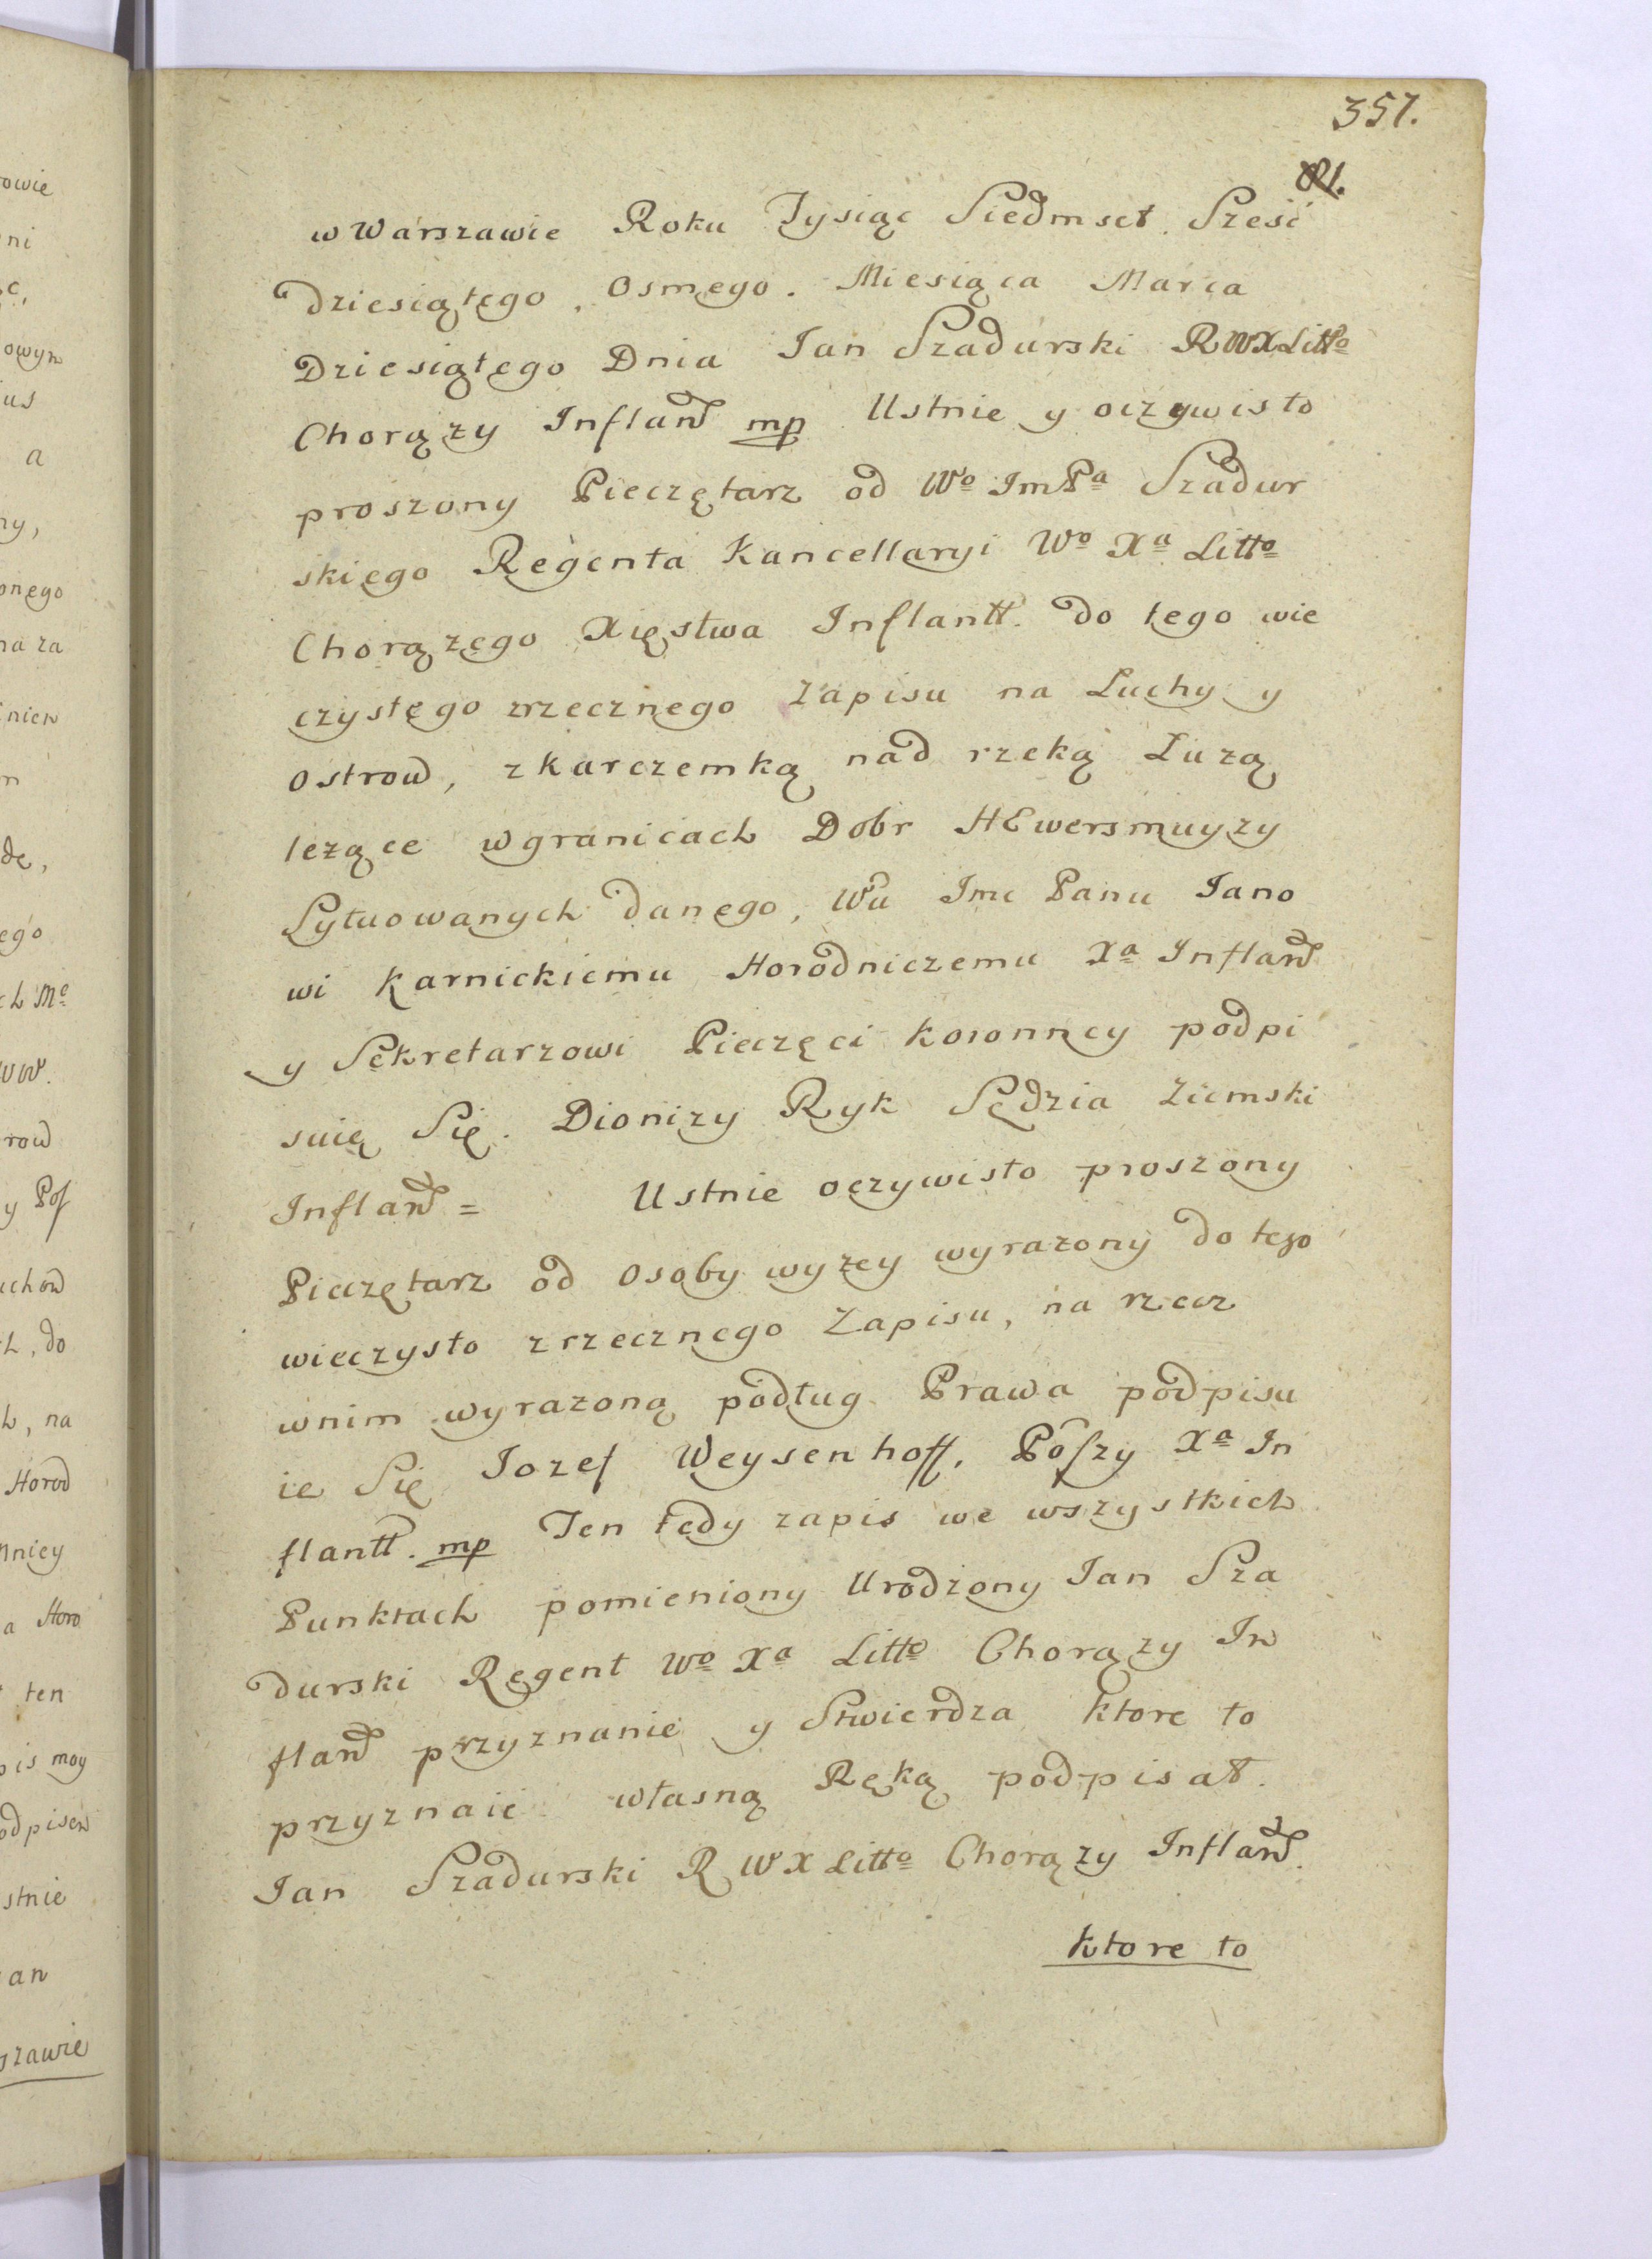 357.
w Warszawie Roku Tysiąc Siedmset Sześć
dziesiątego, Osmego. Miesiąca Marca
Dziesiątego Dnia Jan Szadurski RWXLitto
Chorąży Infland mp Ustnie y oczywisto
proszony Pieczętarz od Wo JmPa Szadur
skiego Regenta Kancellaryi Wo Xa Litto
Chorązego Xięstwa Inflantt. do tego wie
czystego zrzecznego Zapisu na Luchy y
Ostrow, z Karczemką nad rzeką Luzą
leżące w granicach Dobr HEwersmuyzy
Sytuowanych danego, Wu Jmc Panu Jano
wi Karnickiemu Horodniczemu Xa Infland
y Sekretarzowi Pieczęci Koronney podpi
suię Się. Dionizy Ryk Sędzia Ziemski
Infland = Ustnie oczywisto proszony
Pieczętarz od Osoby wyzey wyrazony do tego
wieczysto zrzecznego Zapisu, na rzecz
w nim wyrazoną podług Prawa podpisu
ie Się Jozef Weysenhoff, Pôszy Xa In
flantt. mp Ten tedy zapis we wszystkich
Punktach pomieniony Urodzony Jan Sza
durski Regent Wo Xa Litto Chorązy In
fland przyznanie y Stwierdza ktore to
przyznaie własną Ręką podpisał.
Jan Szadurski R W X Litto Chorązy Infland.
ktore to